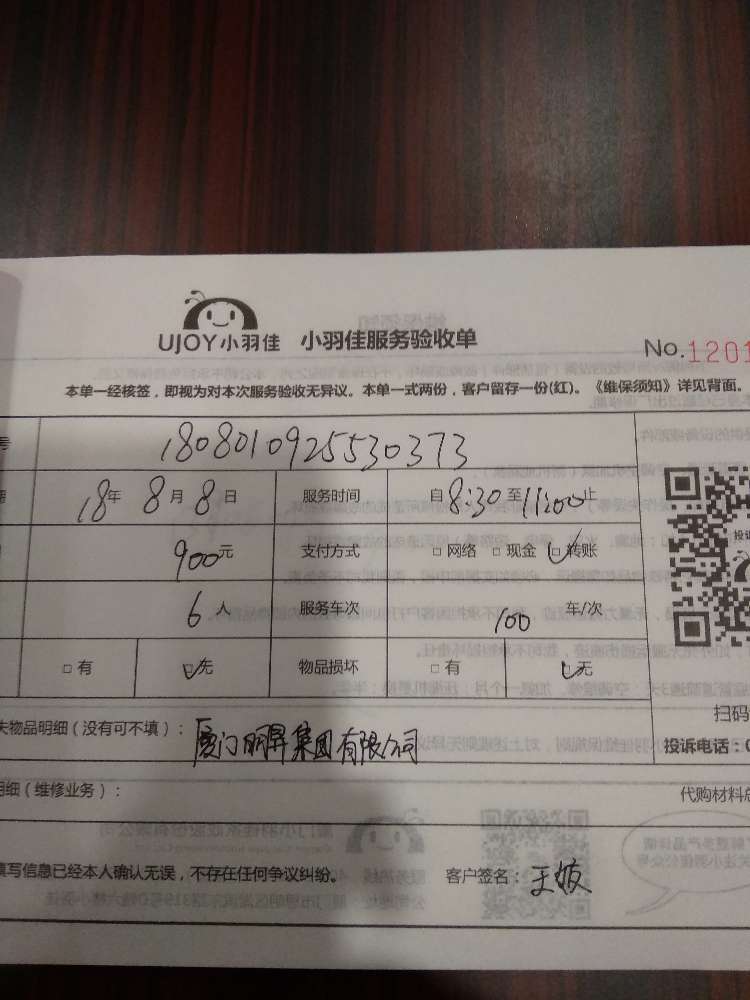 UJOY小羽佳 小羽佳服务验收单
No.1201
本单一经核签，即视为对本次服务验收无异议。本单一式两份，客户留存一份(红)。《维保须知》详见背面。
号 1808010925530373
期 18年 8月 8日 服务时间 自8:30至11:00止
900元 支付方式 □网络 □现金 ☑转账
6人 服务车次 100 车/次
□有 ☑无 物品损坏 □有 ☑无
失物品明细（没有可不填）：厦门明昇集团有限公司
扫码
投诉电话：0
明细（维修业务）： 代购材料总
填写信息已经本人确认无误，不存在任何争议纠纷。 客户签名：王